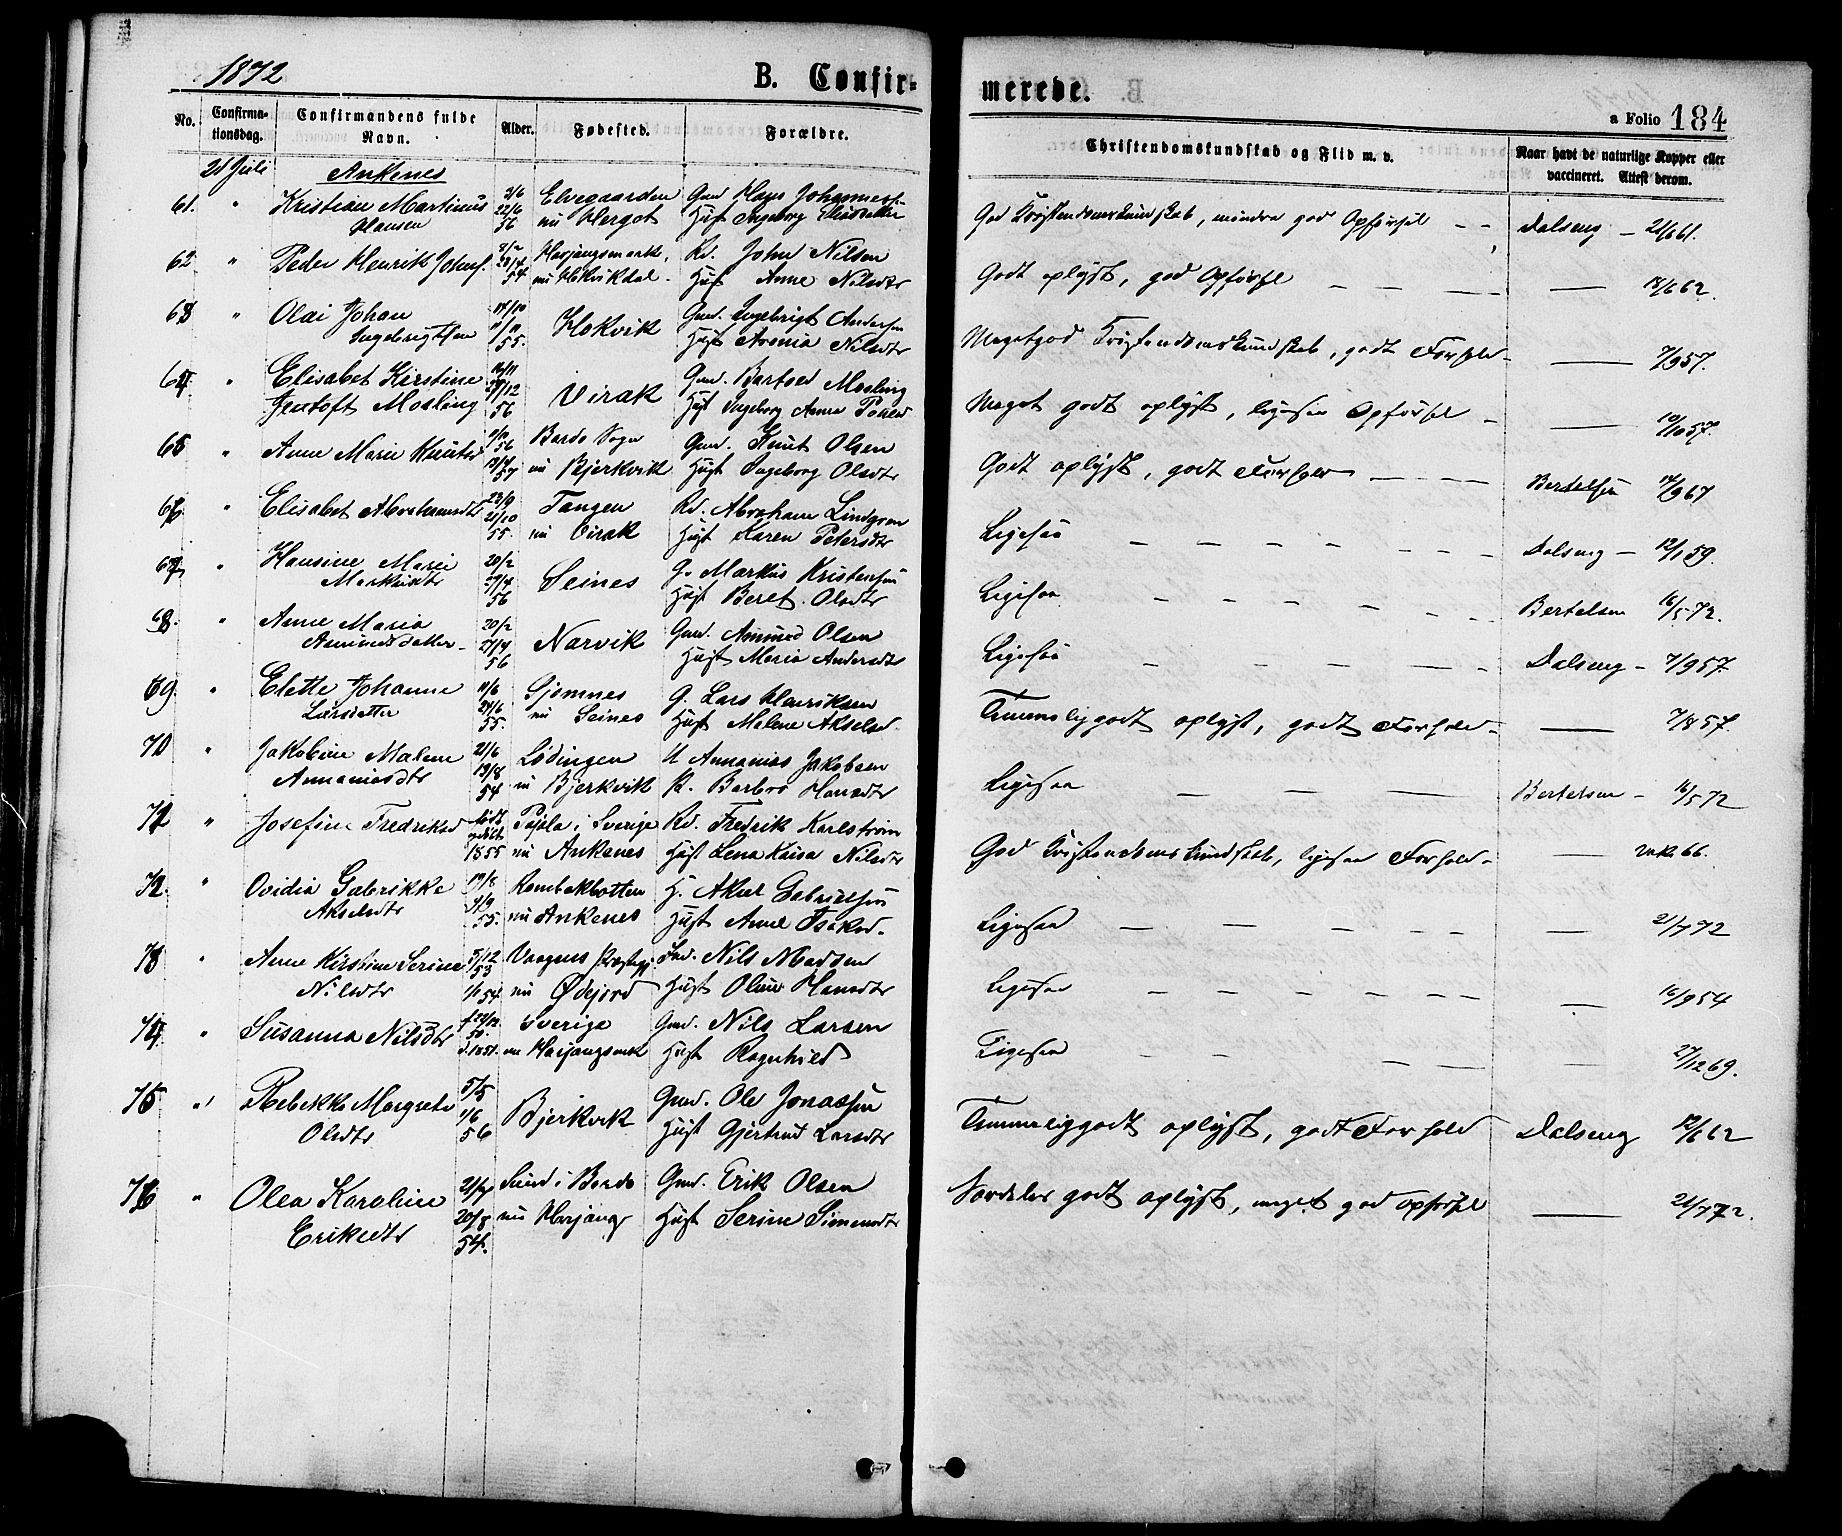 1872
B. Confir-
merede.
a Folio 184
No.
Confirma-
tionsdag.
Confirmandens fulde
Navn.
Alder.
Fødested.
Forældre.
Christendomskundskab og Flid m. v.
Naar havt de naturlige Kopper eller
vaccineret. Attest derom.
21 Juli Ankenes
61. " Kristian Martinus
Hansen
2/6
22/6
56
Elvegaarden
nu Hergot
Gmd Hans Johannes
Hust Ingeborg
God Kristendomskundskab, mindre god Opførsel - -
Dalseng - 21/6 61.
62 " Peder Henrik Johns.
54
nu Hækvikdal.
Rd. John Nilsen
Hust Anne Nilsdtr
Godt oplyst, god Opførsel - - - -
— 18/6 62.
63 " Olai Johan
Ingebrigtsen
55.
Hokvik
Gmd. Ingebrigt Andersen
Hust Nilsdtr
Megetgod Kristendomskundskab, godt Forhold -
— 7/9 57.
64 " Elisabet Kirstine
Jentoft Mosling
56
Virak
Gmd. Bartold Mosling
Hust Ingeborg Anna
Meget godt oplyst, ligesaa Opførsel -
— 10/10 57.
65 " Anne Marie Knutsd
Bardo Sogn
nu Bjerkvik
Gmd. Knut Olsen
Hust Ingeborg Olsdtr
Godt oplyst, godt Forhold - - - -
Bertelsen 67
66 " Elisabet Abrahamsdtr
23/9
21/10
55.
Tangen
nu Virak
Rd. Abraham Lindgren
Hust Karen Petersdtr
Ligesaa - - - - - - - -
Dalseng - 12/1 59.
67 " Hansine Marie
Markusdtr
20/2
29/4
56
Seines
G. Markus Kristensen
Hust Beret Olsdtr
Ligesaa - - - - - - -
Bertelsen 16/5 72.
68. " Anne Maria
Amundsdatter -
20/2
27/4
56
Narvik
Gmd. Amund Olsen
Hust Maria Andersdtr
Ligesaa - - - - - - -
Dalseng - 7/9 57.
69 " Elette Johanne
Larsdatter
11/6
24/6
55.
Gjomnes
nu Seines
G. Lars Henriksen
Hust Melene Akselsd.
Temmeliggodt oplyst, godt Forhold -
— 7/8 57.
70 " Jakobine Malene
Annaniasdtr
21/6
19/8
54
Lødingen
nu Bjerkvik
U Annanias Jakobsen
P. Barbro Hansdtr
Ligesaa - - - -
Bertelsen - 16/5 72
71 " Josefine Fredriksd
født
1855
Pajala i Sverige
nu Ankenes
Rd. Fredrik Karlstrøm
Hust Lena Kaisa Nilsdtr
God Kristendomskundskab, ligesaa Forhold -
— vak. 66.
72. " Ovidia Gabrikke
Akselsdtr
19/8
9/9
55.
Rombaksbotten
nu Ankenes
H. Aksel Gabrielsen
Hust Anne Isaksd.
Ligesaa - - - - - -
— 21/7 72
73 " Anne Kirstine Serine
Nilsdtr
5/12
53
1/1 54
Vaagens Præstegj.
nu Ødejord
Ind. Nils Madsen
Hust Oline Hansdtr
Ligesaa - - - - - - -
— 16/9 54
74 " Susanna Nilsdtr
50.
d. 1851.
Sverige
nu Harjangsmrk
Gmd. Nils Larsen
Hust Ragnhild
Ligesaa - - - - -
— 27/12 69.
75 " Rebekka Margrete
Olsdtr
5/5
1/6
56
Bjerkvik
Gmd. Ole Jonassen
Hust Gjertrud Larsdtr
Temmeliggodt oplyst, godt Forhold
Dalseng 12/6 62
76 " Olea Karoline
Eriksdtr
20/8
54.
Sund i Bardo
nu Harjang
Gmd. Erik Olsen
Hust Serine Simonsdtr
Særdeles godt oplyst, meget god Opførsel
— 21/7 72.